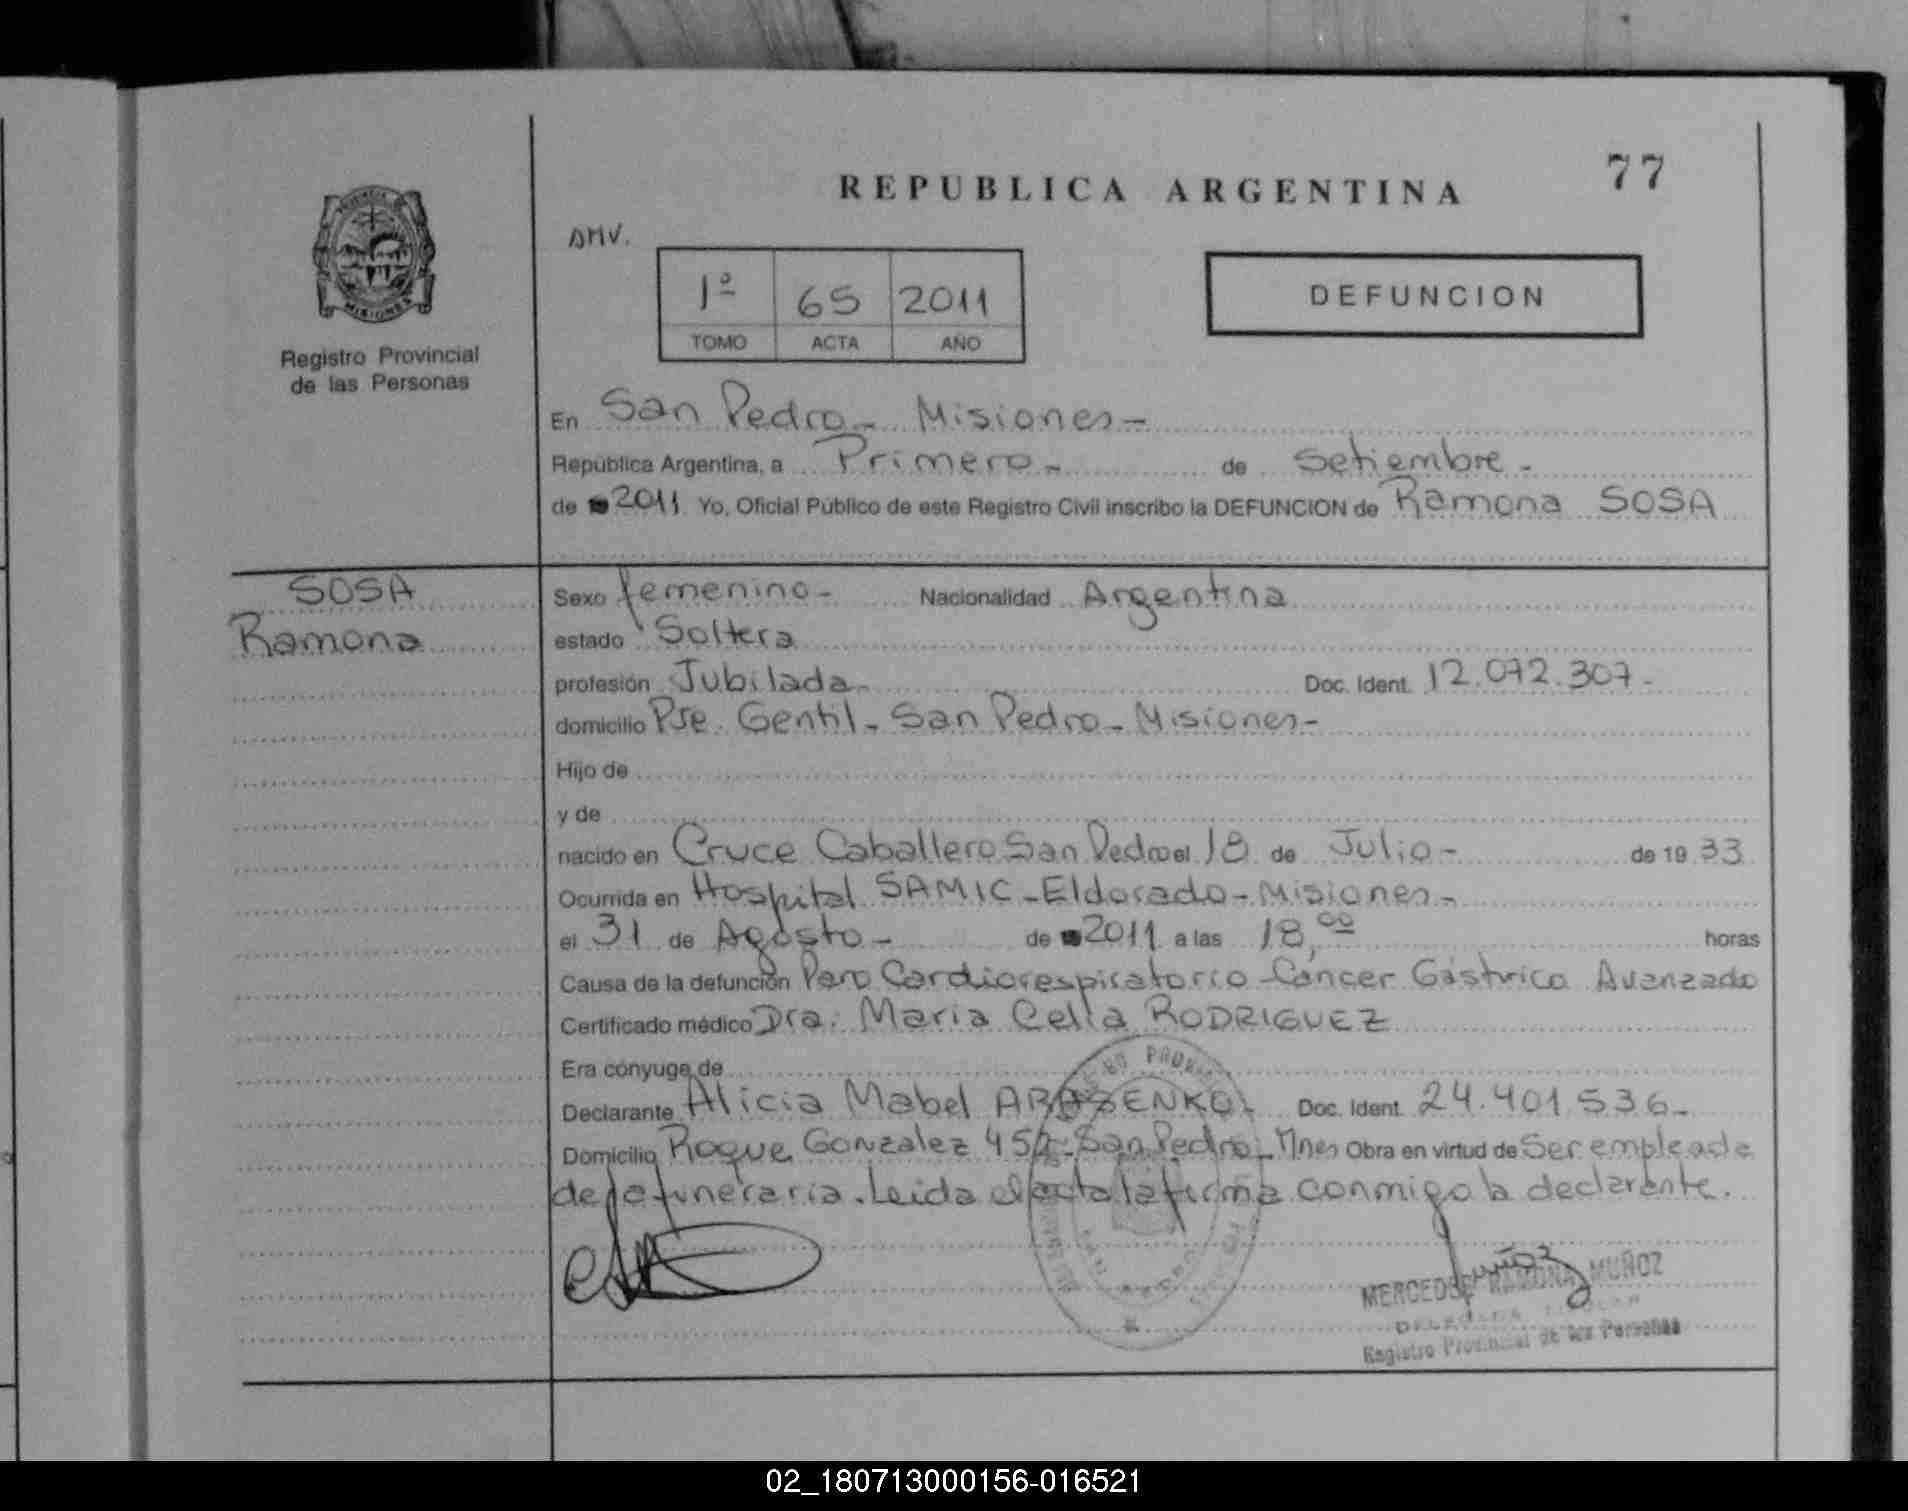 77
REPUBLICA ARGENTINA
AMV.
1º 65 2011
TOMO ACTA AÑO
DEFUNCION
MISIONES
Registro Provincial
de las Personas
En San Pedro - Misiones -
República Argentina, a Primero - de Setiembre -
de 2011 Yo, Oficial Público de este Registro Civil inscribo la DEFUNCION de Ramona SOSA
SOSA
Ramona
Sexo femenino - Nacionalidad Argentina
estado Soltera
profesión Jubilada - Doc. Ident. 12.072.307 -
domicilio Pje. Gentil - San Pedro - Misiones -
Hijo de
y de
nacido en Cruce Caballero San Pedro el 18 de Julio - de 19 33
Ocurrida en Hospital SAMIC - Eldorado - Misiones -
el 31 de Agosto - de 2011 a las 18,00 horas
Causa de la defunción Paro Cardiorespiratorio - Cáncer Gástrico Avanzado
Certificado médico Dra. Maria Celia RODRIGUEZ
Era cónyuge de
Declarante Alicia Mabel Doc. Ident. 24.401.536 -
Domicilio Roque Gonzalez - San Pedro - Mnes Obra en virtud de Ser empleada
de la funeraria. Leida el acta la firma conmigo la declarante.
MERCEDES RAMONA MUÑOZ
Registro Provincial de las Personas
02_180713000156-016521